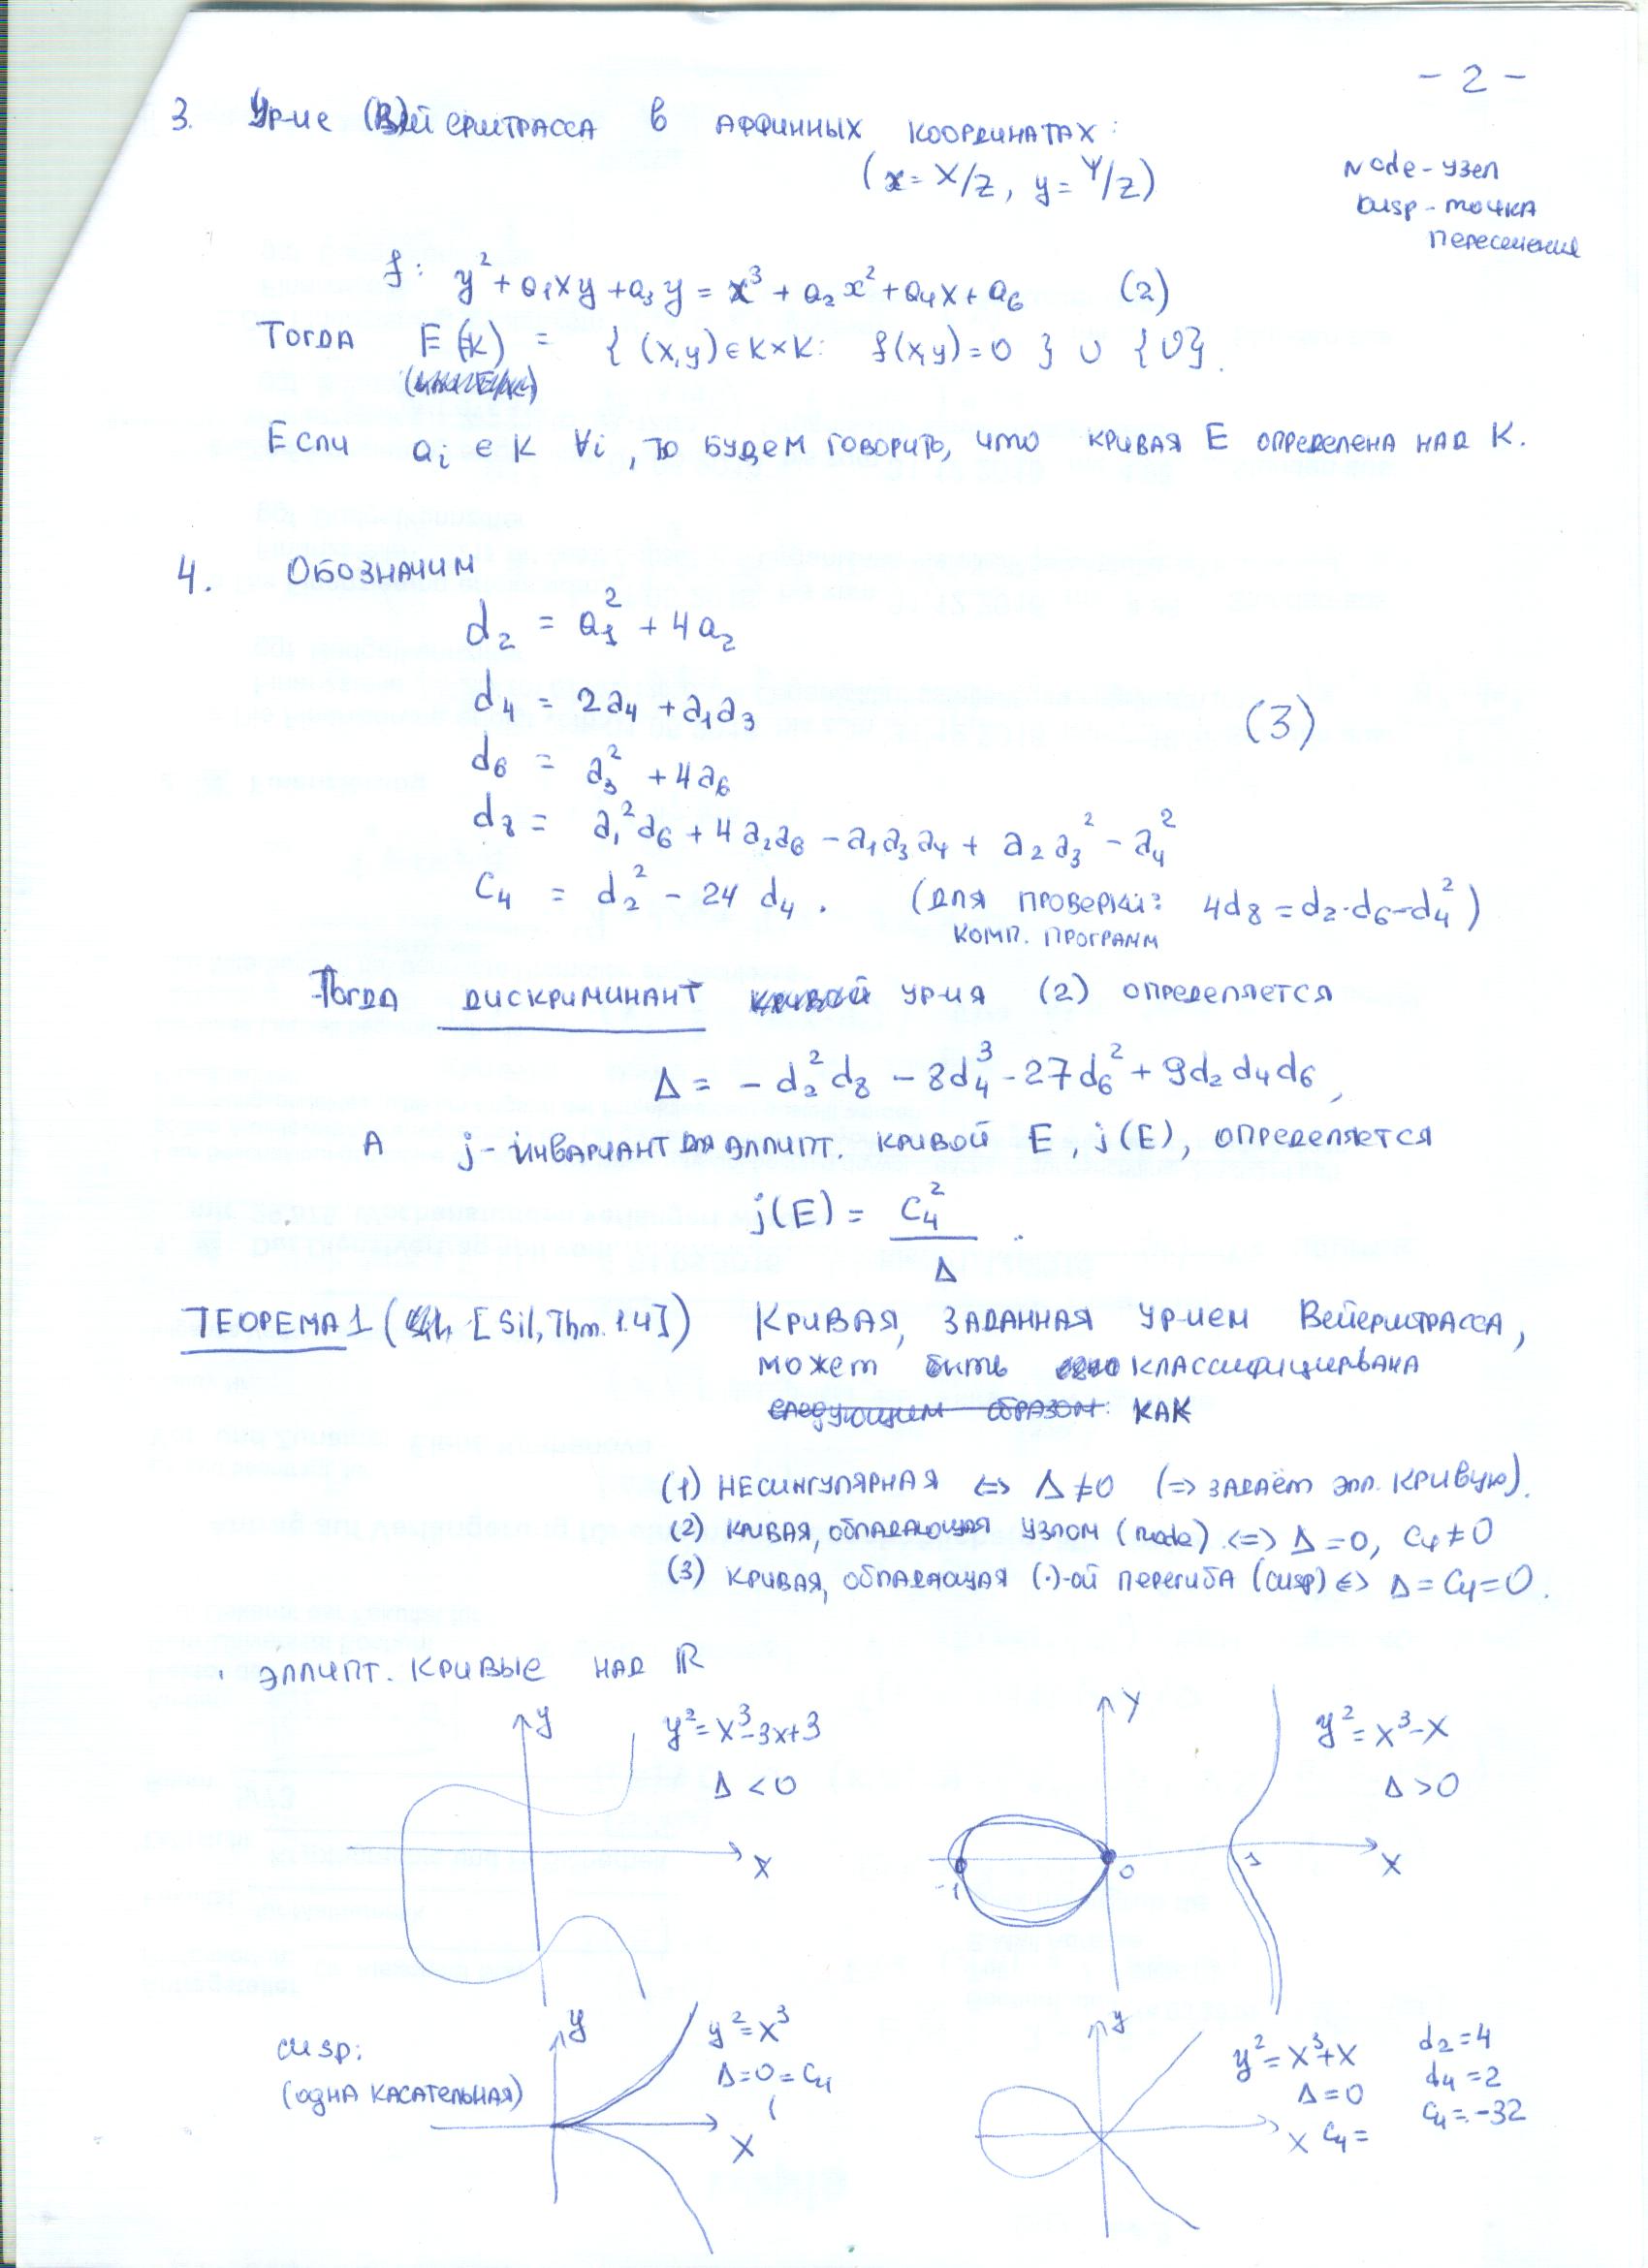 - 2 -
3. Ур-ие (В)ейерштрасса в аффинных координатах:
(x = X/Z, y = Y/Z)
Node - узел
cusp - точка
пересечения
f: y² + a₁xy + a₃y = x³ + a₂x² + a₄x + a₆ (2)
Тогда E(K) = { (x,y) ∈ K×K: f(x,y) = 0 } ∪ {O}.
Если aᵢ ∈ K ∀i, то будем говорить, что кривая E определена над K.
4. Обозначим
d₂ = a₁² + 4a₂
d₄ = 2a₄ + a₁a₃
(3)
d₆ = a₃² + 4a₆
d₈ = a₁²a₆ + 4a₂a₆ - a₁a₃a₄ + a₂a₃² - a₄²
c₄ = d₂² - 24d₄. (для проверки: 4d₈ = d₂·d₆ - d₄²)
комп. программ
Тогда дискриминант ур-ия (2) определяется
Δ = - d₂²d₈ - 8d₄³ - 27d₆² + 9d₂d₄d₆,
А j-инвариант для эллипт. кривой E, j(E), определяется
j(E) = c₄²
Δ .
ТЕОРЕМА 1 ([Sil, Thm. 1.4]) Кривая, заданная ур-ием Вейерштрасса,
может быть классифицирована
следующим образом: как
(1) несингулярная ⇔ Δ ≠ 0 (⇒ задаёт элл. кривую).
(2) кривая, обладающая узлом (node) ⇔ Δ = 0, c₄ ≠ 0
(3) кривая, обладающая (·)-ой перегиба (cusp) ⇔ Δ = c₄ = 0.
Эллипт. кривые над ℝ
y
y² = x³ - 3x + 3
Δ < 0
x
y
y² = x³ - x
Δ > 0
-1
0
1
x
cusp:
(одна касательная)
y
y² = x³
Δ = 0 = c₄
x
y
y² = x³ + x
Δ = 0
x c₄ =
d₂ = 4
d₄ = 2
c₄ = -32